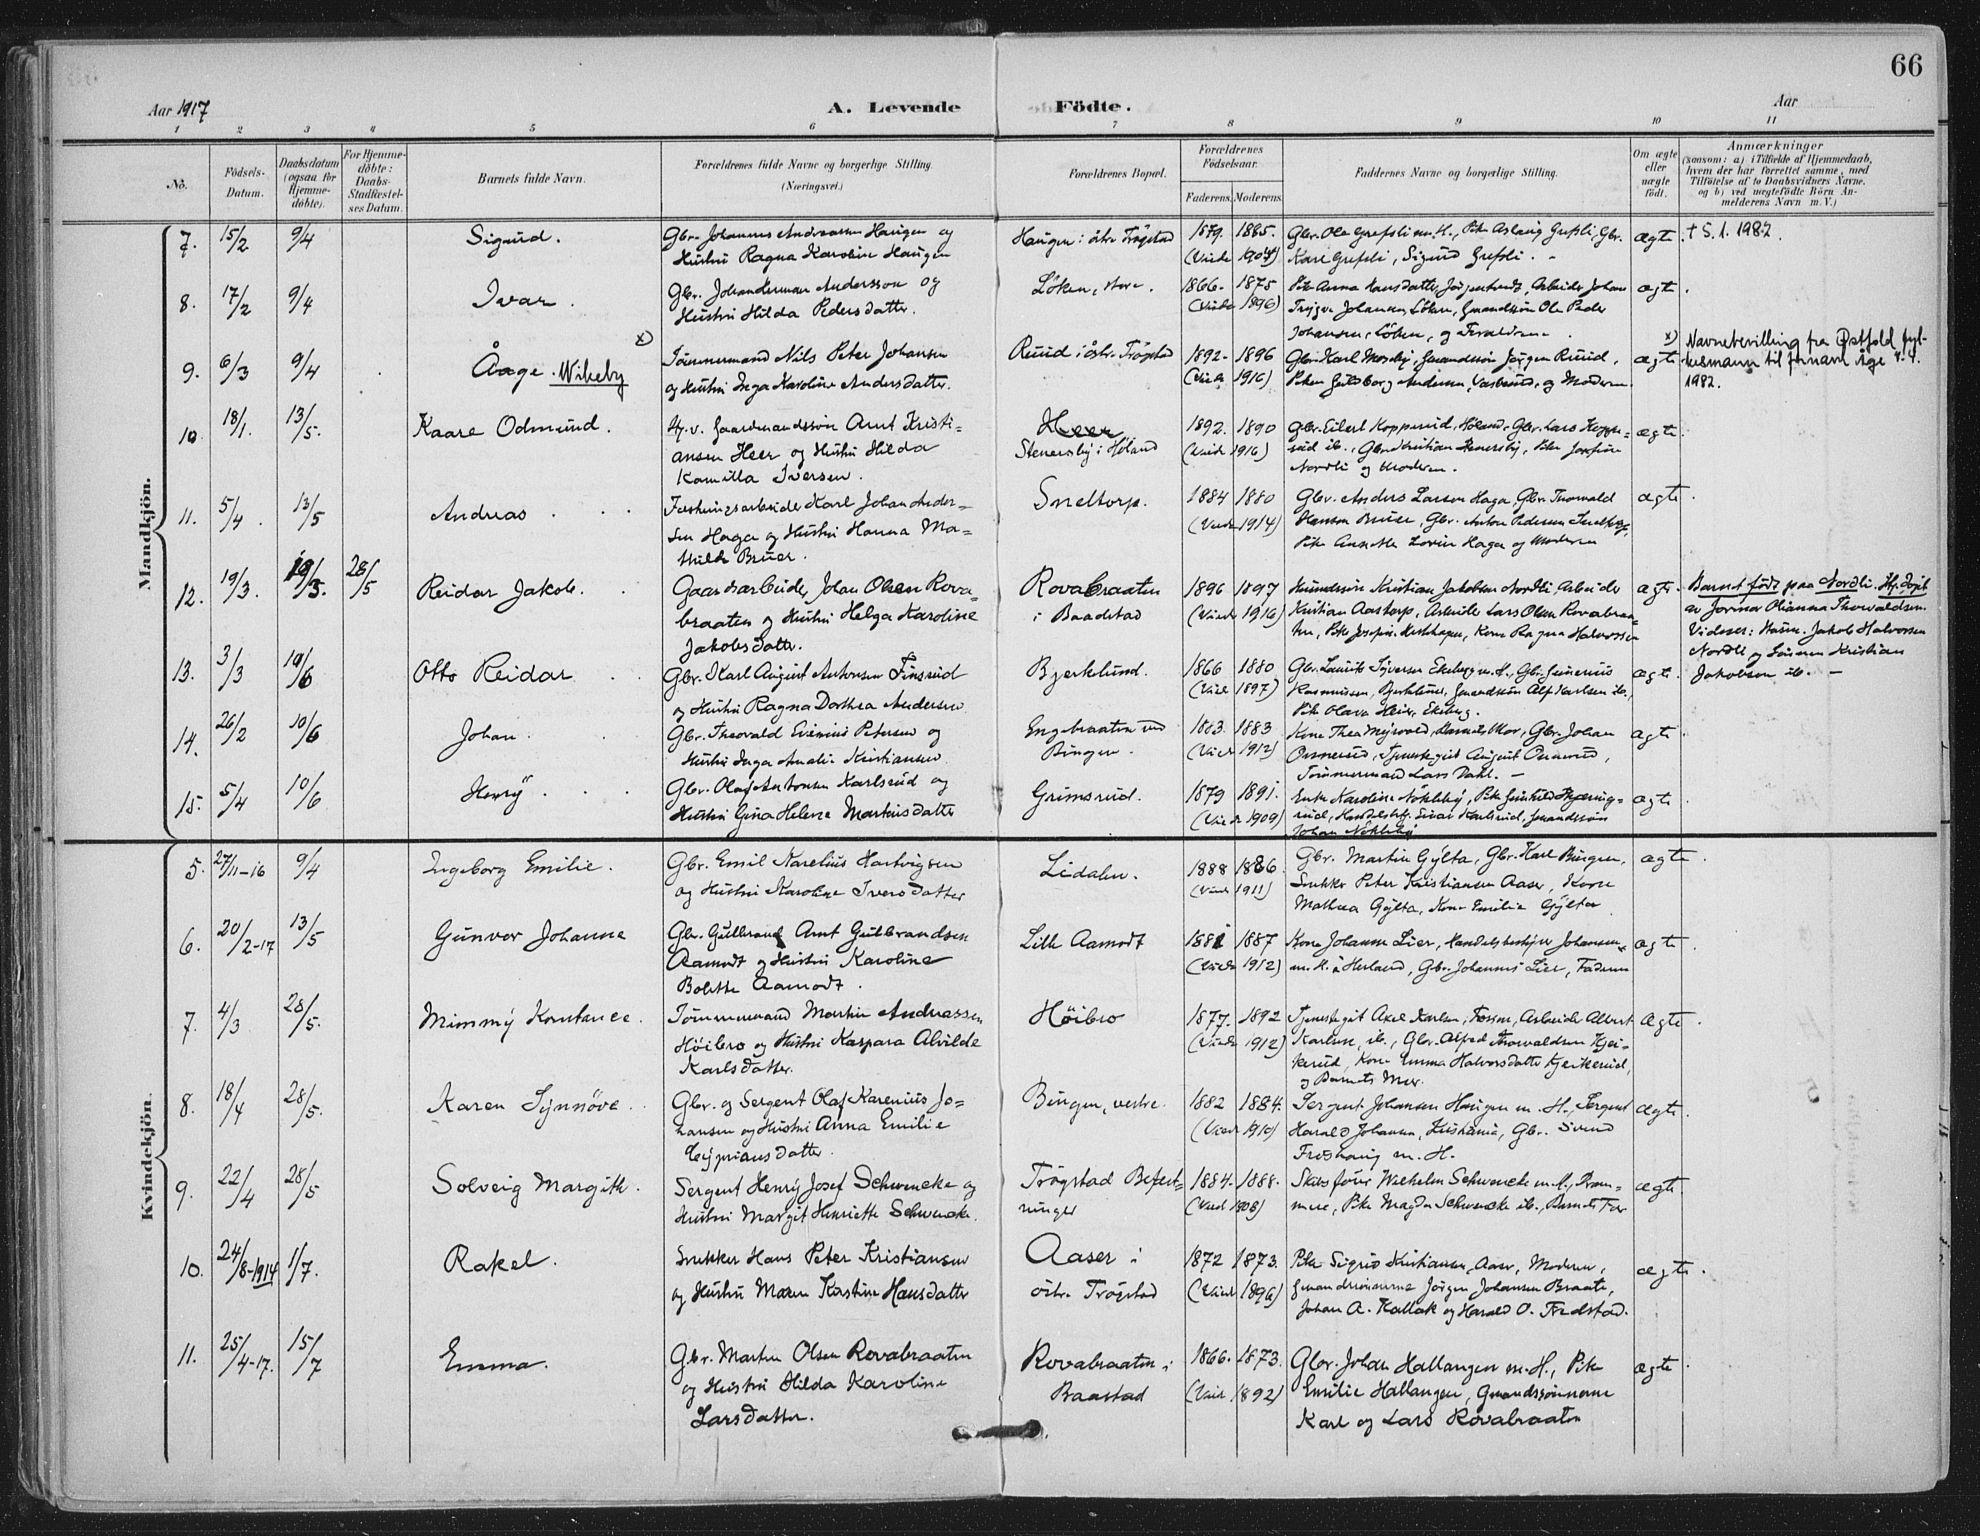 66
Aar 1917
A. Levende
Födte.
Aar
1 2 3 4 5 6 7 8 9 10 11
No.
Födsels-
Datum.
Daabsdatum
(ogsaa for
Hjemme-
döbte).
For Hjemme-
döbte:
Daabs-
Stadfæstel-
ses Datum.
Barnets fulde Navn.
Forældrenes fulde Navne og borgerlige Stilling.
(Næringsvei.)
Forældrenes Bopæl.
Forældrenes
Födselsaar.
Faderens.
Moderens.
Faddernes Navne og borgerlige Stilling.
Om ægte
eller
uægte
födt.
Anmærkninger
(saasom: a) i Tilfælde af Hjemmedaab,
hvem der har forrettet samme, med
Tilföielse af to Daabsvidners Navne,
og b) ved uægtefödte Börn An-
melderens Navn m. V.)
Mandkjön.
7. 15/2 9/4 Sigurd.
Gbr. Johannes Andreassen Haugen og
Hustru Ragna Karoline Haugen
Haugen i östre Trögstad
1879. 1885.
(Viede 1904)
Gbr. Ole Grefsli m. H., Pike Aslaug Grefsli, Gbr.
Karl Grefsli, Sigurd Grefsli. -
ægte. † 5.1.1982.
8. 17/2 9/4 Ivar.
Gbr. Johan Herman Andersson og
Hustru Hilda Pedersdatter.
Löken, store.
1866- 1875
(Viede 1896)
Pike Anna Hansdatter, Arbeider Johan
Trygve Johansen Löken, Gmandssön Ole Peder
Johansen, Löken, og Forældrene.
ægte.
9. 6/3 9/4 Åage. Wikeby x)
Tömmermand Nils Peter Johansen
og Hustru Inga Karoline Andersdatter.
Ruud i östre Trögstad
1892- 1896
(Viede 1916)
Gbr. Karl Mosby, Gmandssön Jörgen Ruud,
Piken Guldborg Andersen, og Moderen
ægte
x) Navnebevilling fra Østfold fyl-
kesmann til fornavn Åge
1982.
10. 18/1. 13/5. Kaare Odmund.
Gaardmandssön Arnt Kristi-
ansen Heer og Hustru Hilda
Kamilla Iversen.
Heer
Stenersby i Höland
1892. 1890
(Viede 1916)
Gbr. Eilert Kopperud, Höland, Gbr. Lars Koppe-
rud ib., Gbr. Kristian Stenersby, Pike Josefine
Nordli og Moderen.
ægte.
11. 5/4. 13/5 Andreas
Karl Johan Ander-
sen Haga og Hustru Hanna Ma-
thilde Bruer.
Sneltorp.
1884 1880
(Viede 1914)
Gbr. Anders Larsen Haga, Gbr. Thorvald
Hansen Bruer, Gbr. Anton Pedersen Sneltorp,
Pike Annette Lovise Haga og Moderen
ægte.
12. 19/3. 19/3. 28/5 Reidar Jakob.
Gaardsarbeider Johan Olsen Rova-
braaten og Hustru Helga Karoline
Jakobsdatter.
Rovabraaten
i Baadstad
1896 1897
(Viede 1916)
Kristian Jakobsen Nordli, Arbeider
Kristian Aastorp, Arbeider Lars Olsen Rovabraa-
ten, Pike Josefine, Kone Ragna Halvorsen
ægte.
Barnet födt paa Nordli. Hj.döpt
av Jorina Olianna Thorvaldsen.
Vidner: Jakob Halvorsen
Nordli og Kristian
Jakobsen ib. -
13. 3/3 10/6 Otto Reidar
Gbr. Karl August Antonsen Finsrud
og Hustru Ragna Dorthea Andersen
Bjerkelund.
1866 1880
(Viede 1897)
Gbr. Laurits Syversen Ekeberg m. H., Gbr. Gunerius
Rasmussen, Bjerkelund, Gmandssön Alf Karlsen ib.,
Pike Olava Heier, Ekeberg.
ægte.
14. 26/2 10/6 Johan
Gbr. Theovald Evenius Petersen og
Hustru Inga Amalie Kristiansen
Engebraaten ved
Bingen.
1883. 1883
(Viede 1912)
Kone Thea Myrvold, Barnets Mor, Gbr. Johan
Onnerud, Tjenestegut August Onnerud,
Tömmermand Lars Dahl. -
ægte.
15. 5/4 10/6 Henry
Gbr. Olaf Antonsen Karlsrud og
Hustru Gina Helene Martinsdatter
Grimsrud.
1879 1891.
(Viede 1909)
Enke Karoline Nökleby, Pike Gunhild Kjærnig-
rud, Einar Karlsrud, Gmandssön
Johan Nökleby
ægte.
Kvindekjön.
5. 27/11-16 9/4 Ingeborg Emilie.
Gbr. Emil Karelius Hartvigsen
og Hustru Karoline Iversdatter
Lidalen.
1888 1886.
(Viede 1911)
Gbr. Martin Gylta, Gbr. Karl Bingen,
Snekker Peter Kristiansen Aaser, Kone
Mathea Gylta, Kone Emilie Gylta
ægte.
6. 20/2-17 13/5 Gunvor Johanne
Gbr. Gulbrand Arnt Gulbrandsen
Aamodt og Hustru Karoline
Bolette Aamodt.
Lille Aamodt
1881 1887
(Viede 1912)
Kone Johanne Lier, Handelsbestyrer Johansen
m. H. i Herland, Gbr. Johannes Lier, Faderen
ægte.
7. 4/3 28/5. Mimmy Konstance.
Tömmermand Martin Andreassen
Höibro og Hustru Kaspara Alvilde
Karlsdatter.
Höibro
1877. 1892
(Viede 1912)
Tjenestegut Axel Karlsen, Fossen, Arbeider Albert
Karlsen, ib., Gbr. Alfred Thorvaldsen Kjei-
kerud, Kone Emma Halvorsdatter Kjeikerud,
og Barnets Mor.
Ægte.
8. 18/4 28/5. Karen Synnöve.
Gbr. og Sergent Olaf Karenius Jo-
hansen og Hustru Anna Emilie
Cypriansdatter.
Bingen, vestre
1882 1884.
(Viede 1910)
Sergent Johansen Haugen m. H., Sergent
Harald Johansen, Kristiania, Gbr. Svend
Froshaug m. H.
Ægte.
9. 22/4 28/5 Solveig Margith.
Sergent Henry Josef Schwencke og
Hustru Margit Henriette Schwencke.
Trögstad Befæst-
ninger
1884. 1888.
(Viede 1908)
Wilhelm Schwencke m. H., Dram-
men, Pike Magda Schwencke ib., Barnets Far
ægte.
10. 24/8-1914 1/7. Rakel.
Snekker Hans Peter Kristiansen
og Hustru Maren Kirstine Hansdatter
Aaser i
östre Trögstad
1872 1873.
(Viede 1896)
Pike Sigrid Kristiansen, Aaser, Moderen,
Gmandssönnerne Jörgen Johansen Braate,
Johan A. Kallak og Harald O. Fredstad.
ægte.
11. 25/4-17. 15/7 Emma.
Gbr. Martin Olsen Rovabraaten
og Hustru Hilda Karoline
Larsdatter.
Rovabraaten i
Baastad
1866. 1873.
(Viede 1892)
Gbr. Johan Hallangen m. H., Pike
Emilie Hallangen, Gmandssönnerne
Karl og Lars Rovabraaten
ægte.